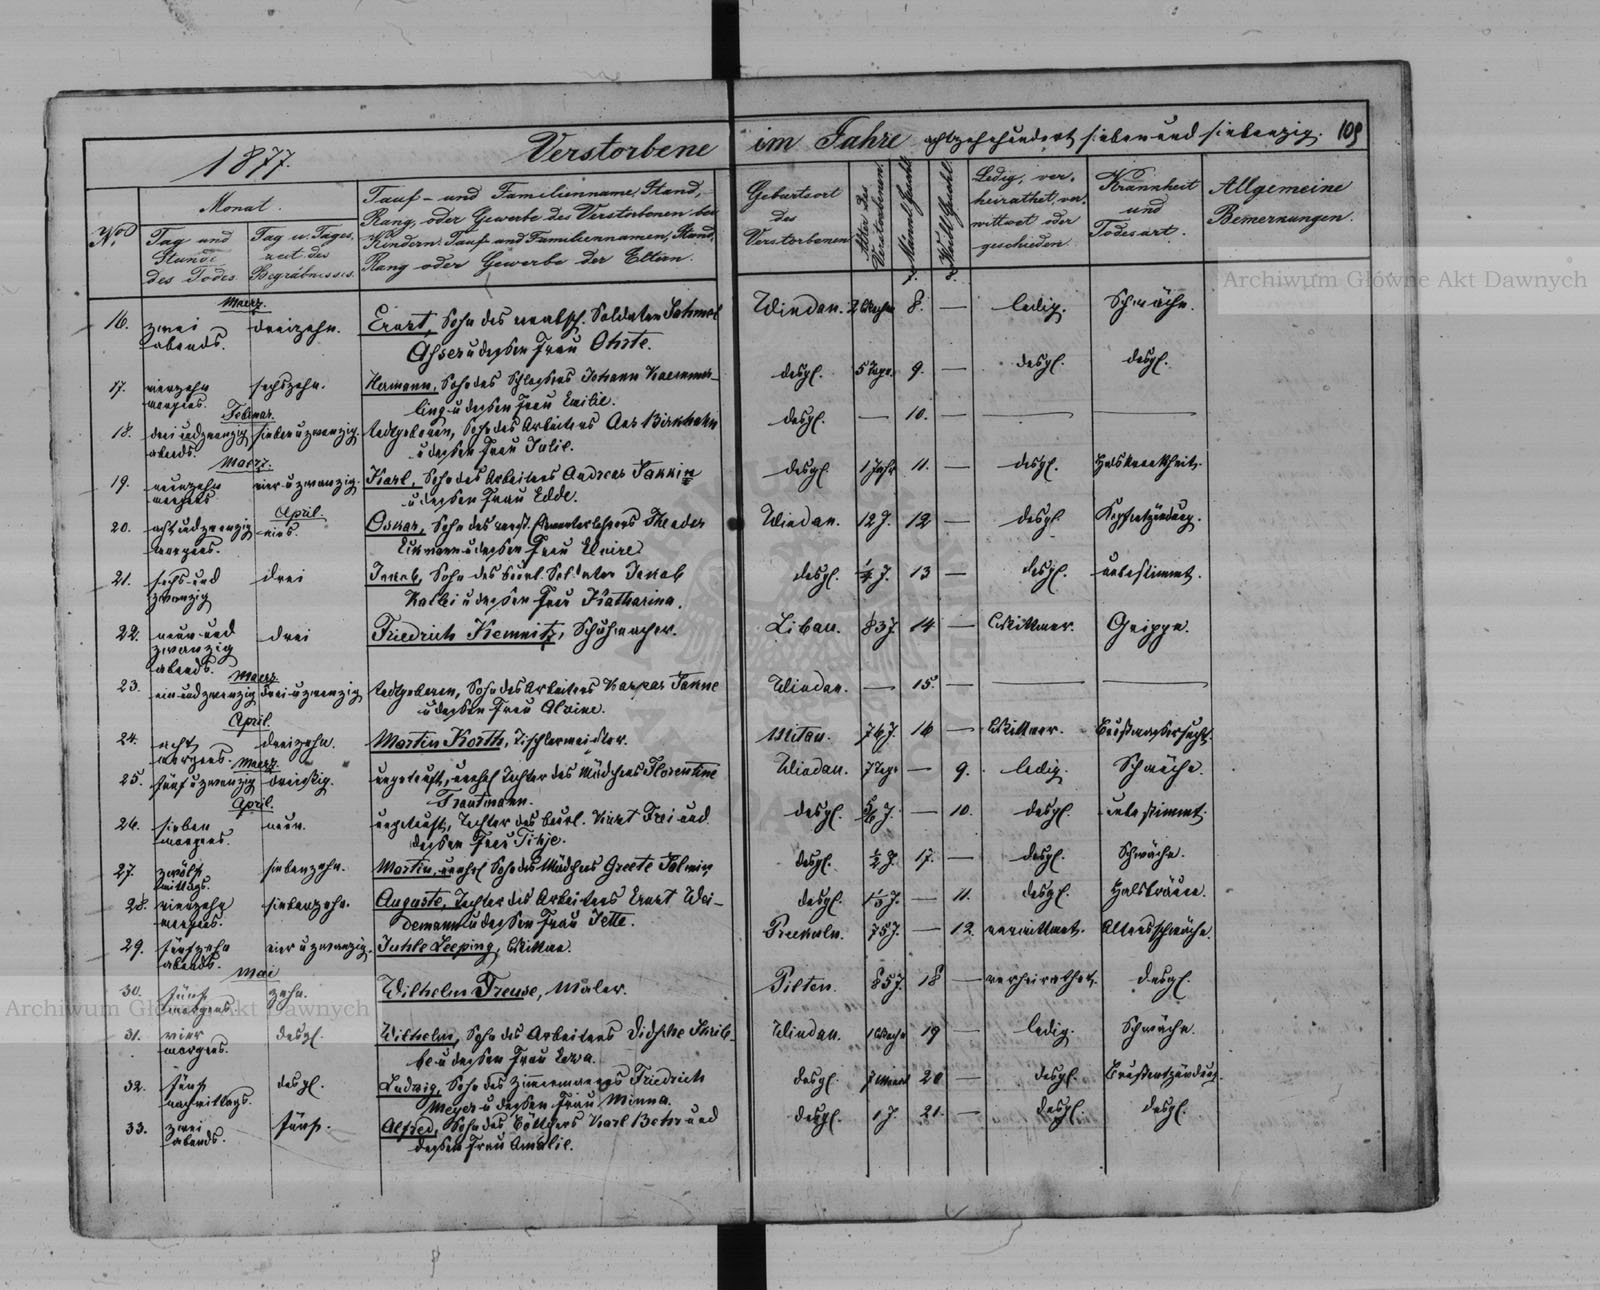 1877.
Verstorbene im Jahre achtzehnhundert sieben und siebenzig. 109
No.
Monat.
Tag und Stunde des Todes
Tag u. Tageszeit des Begräbnisses.
Tauf- und Familienname, Stand,
Rang, oder Gewerbe des Verstorbenen bei
Kindern: Tauf- und Familiennamen, Stand,
Rang oder Gewerbe der Eltern.
Geburtsort des Verstorbenen
Alter des Verstorbenen
Männl. Geschl.
Weibl. Geschl.
Ledig, verheirathet, verwittwet oder geschieden
Krankheit und Todesart.
Allgemeine Bemerkungen.
Maerz.
16. zwei abends. dreizehn. Ernst, Sohn des verabsch. Soldaten Windau. 2 Woch 8. — ledig. Schwäche.
u dessen Frau Ohrte.
17. vierzehn morgens. sechszehn. Hermann, Sohn des Schlossers Johann Kaemmer- desgl. 5 Tage. 9. — desgl. desgl.
ling u dessen Frau Emilie.
Februar.
18. drei und zwanzig abends. sieben u zwanzig. todtgeboren, Sohn des Arbeiters Ans Birkhahn desgl. — 10. — — —
u dessen Frau Julie.
Maerz.
19. neunzehn morgens vier u zwanzig. Karl, Sohn des Arbeiters Andreas desgl. 1 Jahr 11. — desgl. Halskrankheit.
u dessen Frau Edde.
April.
20. acht und zwanzig morgens. eins. Oskar, Sohn des Windau. 12 J. 12 — desgl. Kopfentzündung.
u dessen Frau
21. sechs und zwanzig drei Jakob, Sohn des beurl. Soldaten Jakob desgl. 1/4 J. 13 — desgl. unbestimmt.
u dessen Frau Katharina.
22. neun und zwanzig abends. drei Friedrich Kemnitz, Schuhmacher. Libau. 83 J. 14 — Wittwer. Grippe.
Maerz
23. ein und zwanzig drei u zwanzig todtgeboren, Sohn des Arbeiters Kaspar Janne Windau. — 15. — — —
u dessen Frau Alwine.
April.
24. acht morgens. dreizehn. Martin Korth, Tischlermeister. Mitau. 76 J. 16 — Wittwer. Brustwassersucht.
Maerz.
25. fünf u zwanzig dreissig. ungetauft, unehel Tochter des Mädchens Florentine Windau. 7 Tage — 9. ledig. Schwäche.
Trautmann.
April.
26. sieben morgens. neun. ungetauft, Tochter des beurl. Frei und desgl. — 10. desgl. unbestimmt.
dessen Frau
27. zwölf mittags. siebenzehn. Martin, unehel Sohn des Mädchens Greete desgl. 1/2 J. 17. — desgl. Schwäche.
28. vierzehn morgens. siebenzehn. Auguste, Tochter des Arbeiters Ernst Wei- desgl. — 11. desgl. Halsbräune.
demann u dessen Frau Jette.
29. fünfzehn abends. vier u zwanzig. Juhle Leeping, Wittwe. 75 J. — 12. verwittwet. Altersschwäche.
Mai
30. fünf morgens. zehn. Wilhelm Freuse, Maler. Pilten. 85 J. 18 — verheirathet. desgl.
31. vier morgens. desgl. Wilhelm, Sohn des Arbeiters Windau. 1 Woche 19 — ledig. Schwäche.
u dessen Frau Ewa.
32. fünf nachmittags. desgl. Ludwig, Sohn des Zimmermanns Friedrich desgl. 7 Monat 20 — desgl. Brustentzündung.
Meyer u dessen Frau Minna.
33. zwei abends. fünf. Alfred, Sohn des Böttchers Karl Behr und desgl. 1 J. 21. — desgl. desgl.
dessen Frau Amalie.
Archiwum Główne Akt Dawnych
Archiwum Główne Akt Dawnych